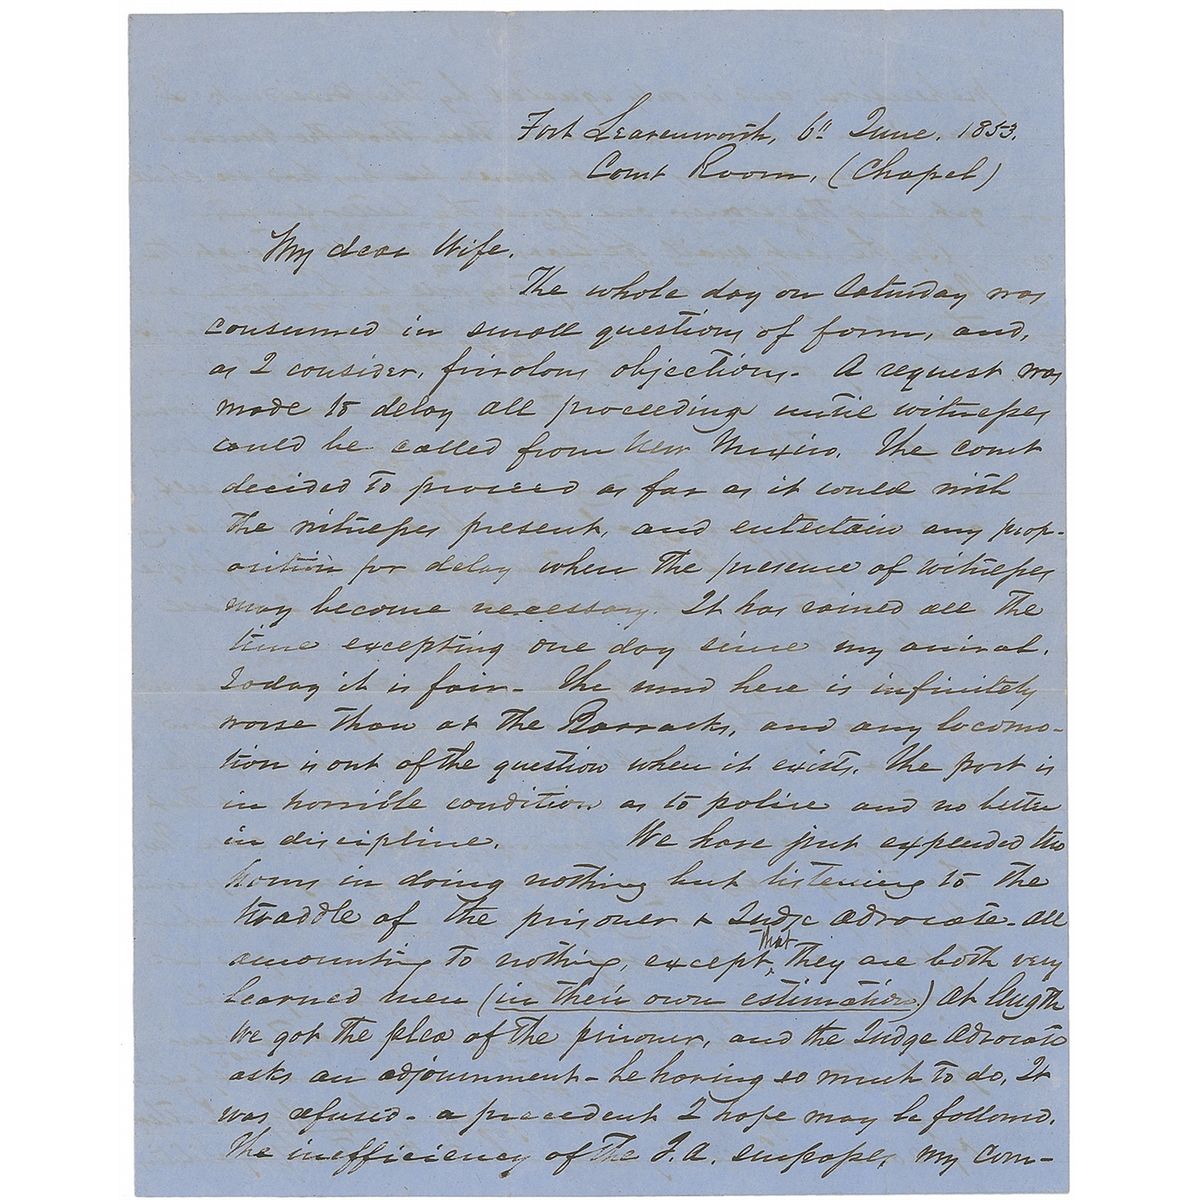 Fort Leavenworth, 6" June, 1853.
Court Room, (Chapel)
My dear Wife.
The whole day on Saturday was
consumed in small questions of form, and,
as I consider, frivolous objections. A request was
made to delay all proceeding until witnesses
could be called from New Mexico. The court
decided to proceed as far as it could with
the witnesses present, and entertain any prop-
osition for delay when the presence of witnesses
may become necessary. It has rained all the
time excepting one day since my arrival.
Today it is fair - The mud here is infinitely
worse than at the Barracks, and any locomo-
tion is out of the question when it exists. The post is
in horrible condition as to police and no better
in discipline. We have just expended two
hours in doing nothing but listening to the
twaddle of the prisoner & Judge Advocate - all
amounting to nothing, except, that they are both very
learned men (in their own estimation) At length
we got the plea of the prisoner, and the Judge Advocate
asks an adjournment - he having so much to do. It
was refused - a precedent I hope may be followed.
The inefficiency of the J.A. surpasses my com-